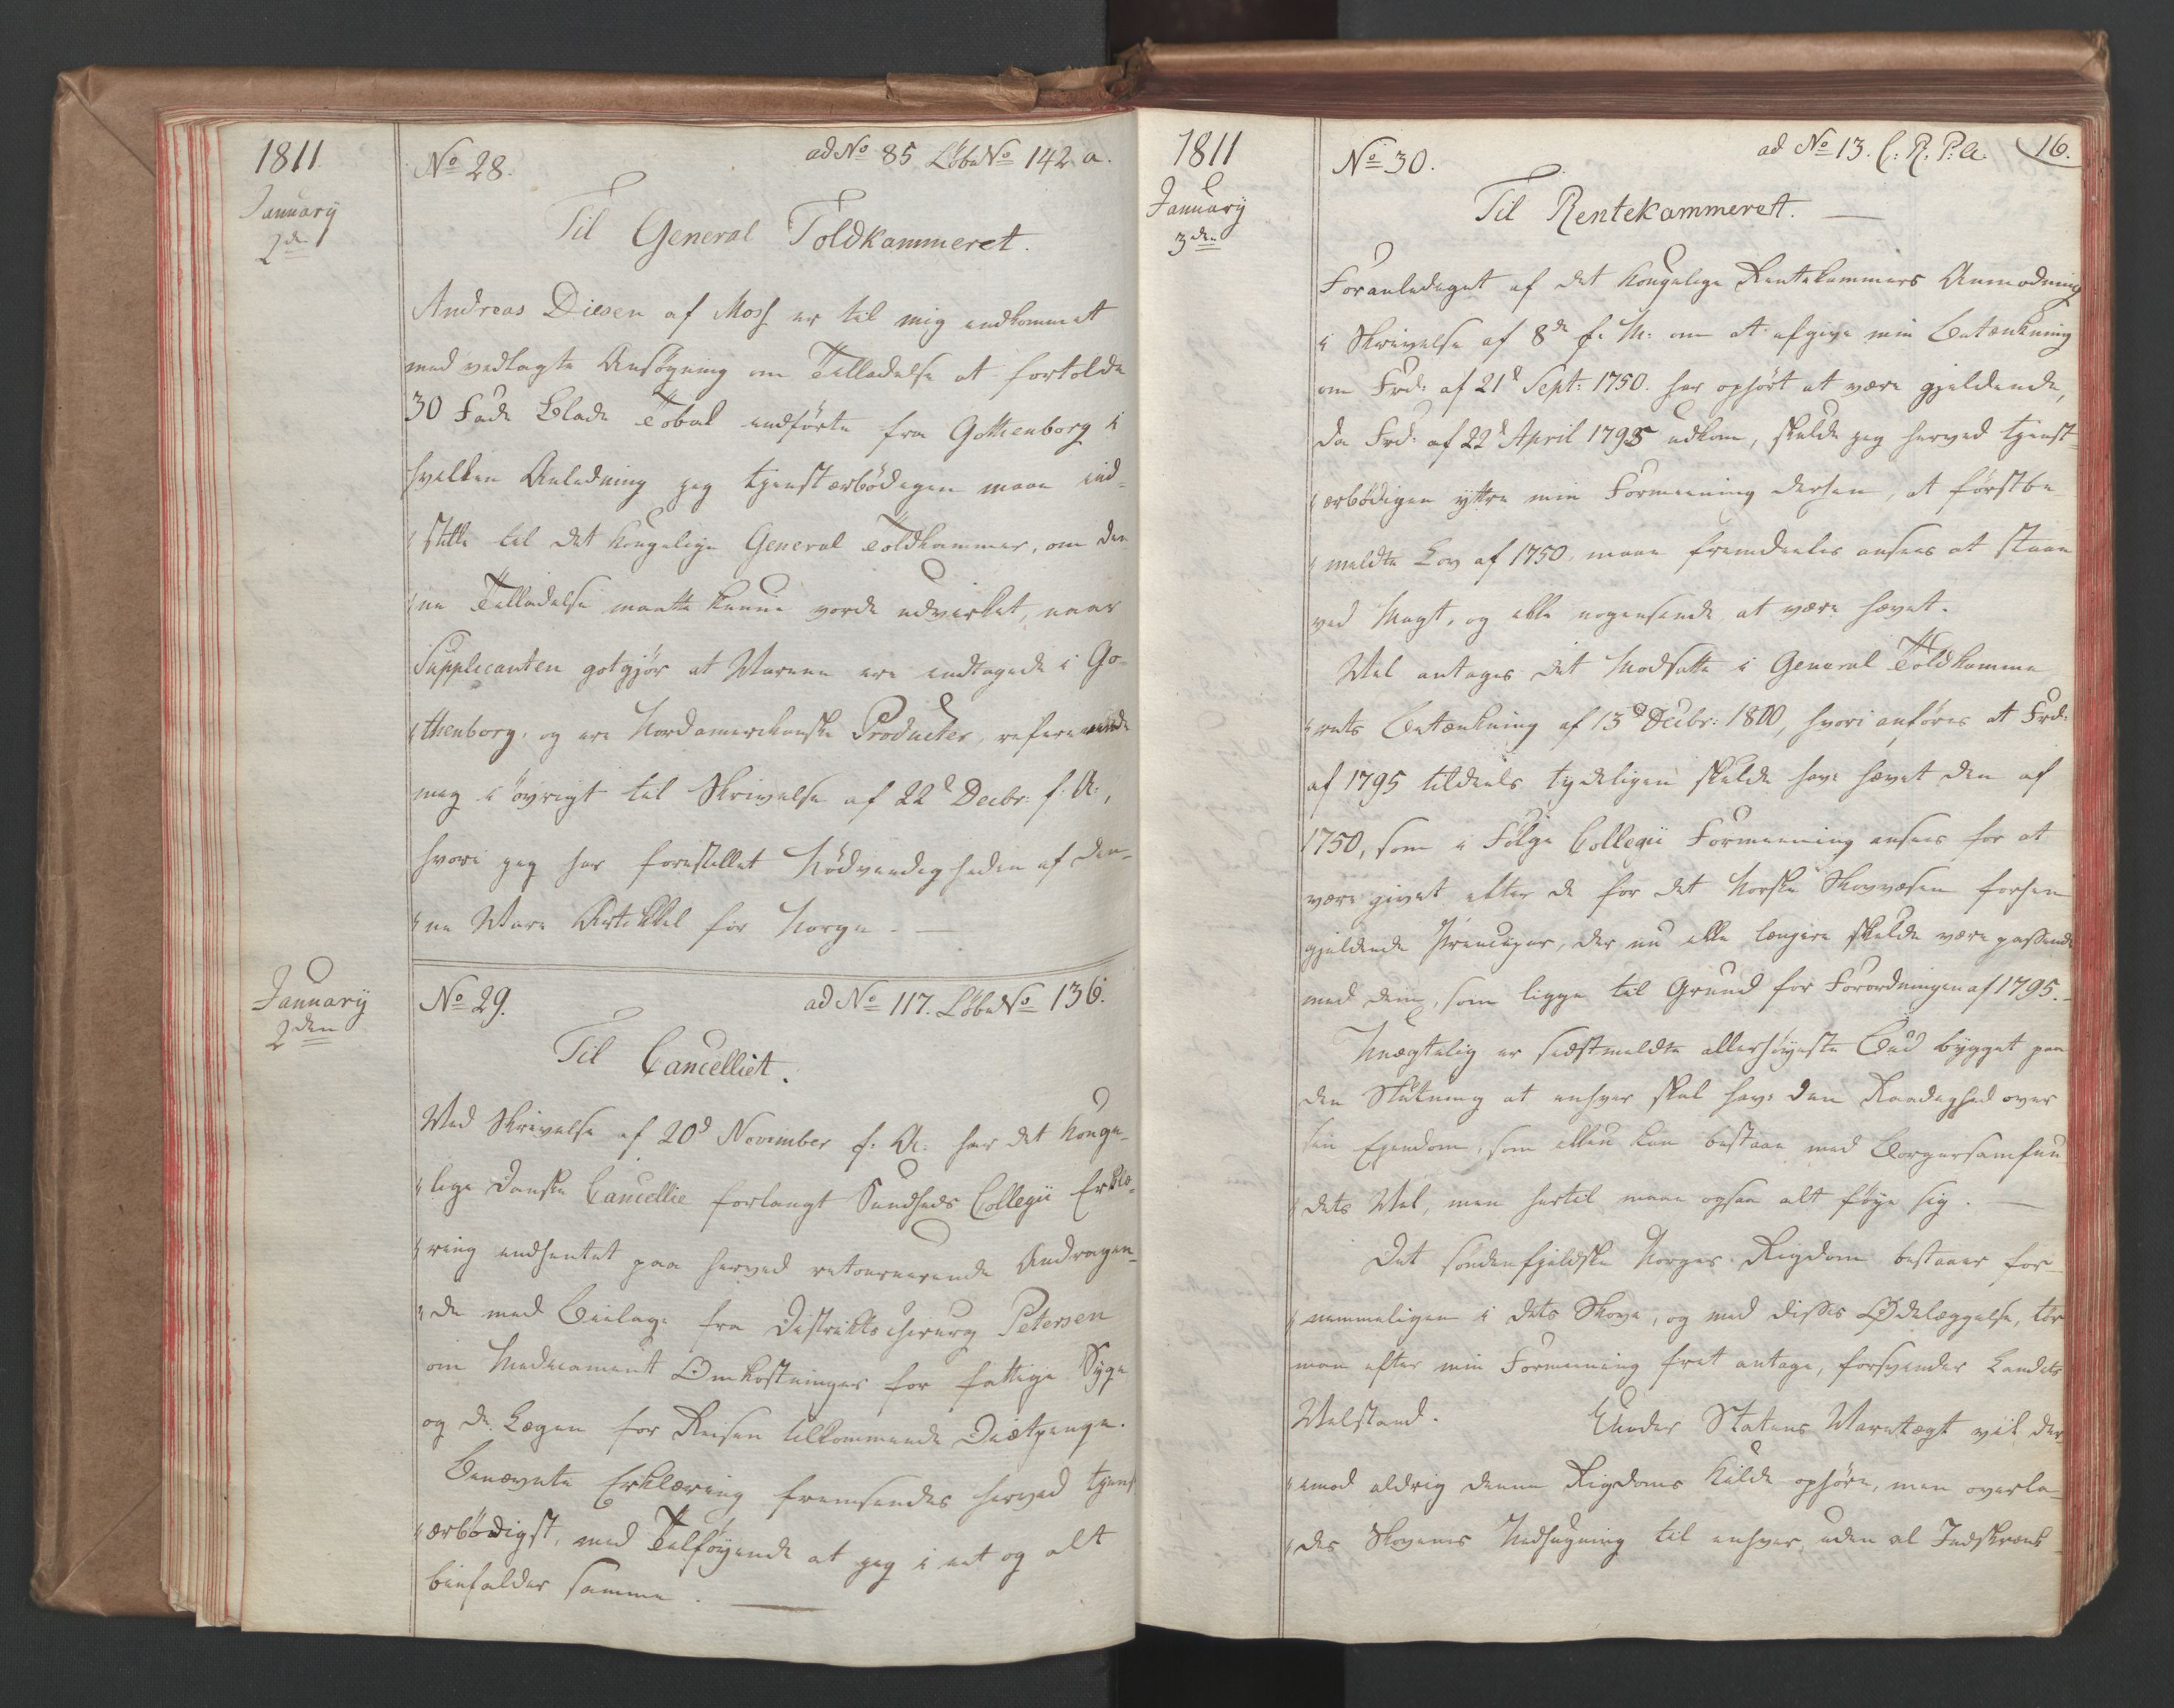 1811.
January
2den
No 28.
ad No 85 Løbe No 142 a.
Til General Toldkammeret.
Andreas Diesen af Moss er til mig indkommet
med vedlagte Ansøgning om Tilladelse at fortolde
30 Fade Blade Tobak indførte fra Gothenborg i
hvilken Anledning jeg tjenstærbødigen maae ind-
stille til det kongelige General Toldkammer, om den-
ne Tilladelse maatte kunne vorde udvirket, naar
Supplicanten gotgjør at Varene ere indtagede i Go-
thenborg, og ere Nordamerikanske Producter, refererende
mig i øvrigt til Skrivelse af 22d Decbr: f. A:,
hvori jeg har forestillet Nødvendigheden af den-
ne Vare Artikkel for Norge. —
January
2den
No 29.
ad No 117. Løbe No 136.
Til Cancelliet.
Ved Skrivelse af 20d November f. A. har det konge-
lige danske Cancellie forlangt Sundheds Collegii Erklæ-
ring indhentet paa herved retournerende Andragen-
de med Bielage fra Districtschirurg Petersen
om Medicament Omkostninger for fattige Syge
og de Lægen for Reisen tilkommende Diætpenge.
Benævnte Erklæring fremsendes herved tjenst
ærbødigst, med Tilføyende at jeg i eet og alt
bifalder samme. —
1811
January
3den
No 30.
ad No 13. C. R. P: A.
16.
Til Rentekammeret. —
Foranlediget af det kongelige Rentekammers Anmodning
i Skrivelse af 8de f. M: om at afgive min Betænkning
om Frd: af 21d Sept: 1750 har ophørt at være gjeldende,
da Frd: af 22d April 1795 udkom, skulde jeg herved tjenst-
ærbødigen yttre min Formeening derhen, at førstbe
meldte Lov af 1750 maae fremdeeles ansees at staae
ved Magt, og ikke nogensinde at være hævet.
Vel antages det Modsatte i General Toldkamme
rets Betænkning af 13d Decbr: 1810, hvori anføres at Frd:
af 1795 tildeels tydeligen skulde have hævet den af
1750, som i Følge Collegii Formeening ansees for at
være givet efter de for det Norske Skovvæsen forhen
gjeldende Principer, der nu ikke længere skulde være passende
med dem, som ligge til Grund for Forordningen af 1795.
Unægtelig er sidstmeldte allerhøyeste Bud bygget paa
den Slutning at enhver skal have den Raadighed over
sin Ejendom, som ikkun kan bestaae med Borgersamfun
dets Vel, men hertil maae ogsaa alt føye sig. —
Det søndenfjeldske Norges Rigdom bestaaer for-
nemmeligen i dets Skove, og med disses Ødelæggelse, tør
man efter min Formeening frit antage, forsvinder Landets
Velstand. Under Statens Varetægt vil der-
imod aldrig denne Rigdoms Kilde ophøre, men overla-
des Skovenes Nedhugning til enhver, uden al Indskrænk